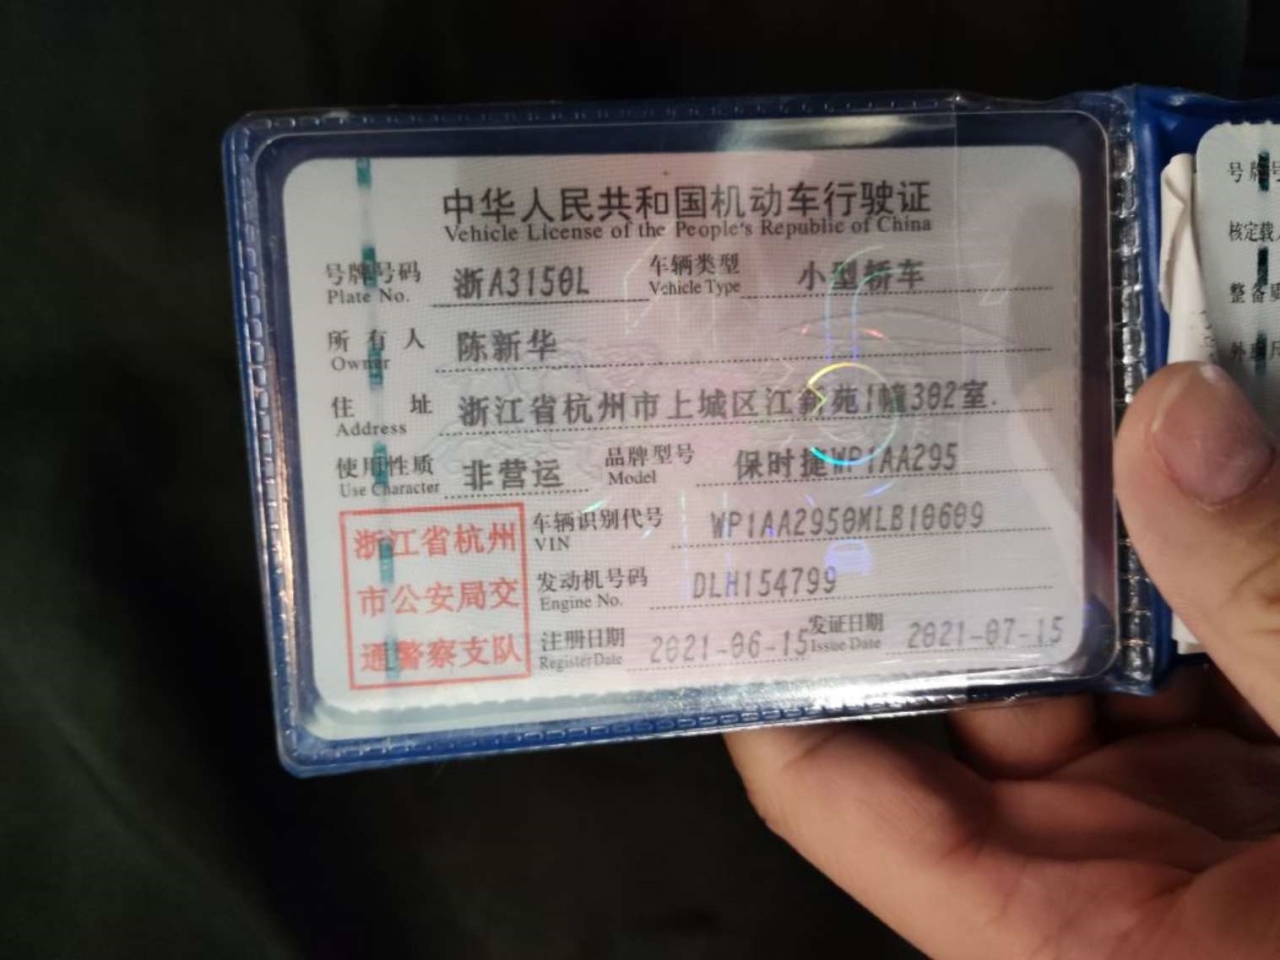 中华人民共和国机动车行驶证
Vehicle License of the People's Republic of China
号牌号码 浙A3150L 车辆类型 小型轿车
Plate No. Vehicle Type
所有人 陈新华
Owner
住址 浙江省杭州市上城区江新苑1幢302室
Address
使用性质 非营运 品牌型号 保时捷WP1AA295
Use Character Model
浙江省杭州
市公安局交
通警察支队
车辆识别代号 WP1AA2950MLB10609
VIN
发动机号码 DLH154799
Engine No.
注册日期 2021-06-15 发证日期 2021-07-15
Register Date Issue Date
号牌号
核定载
整备
外